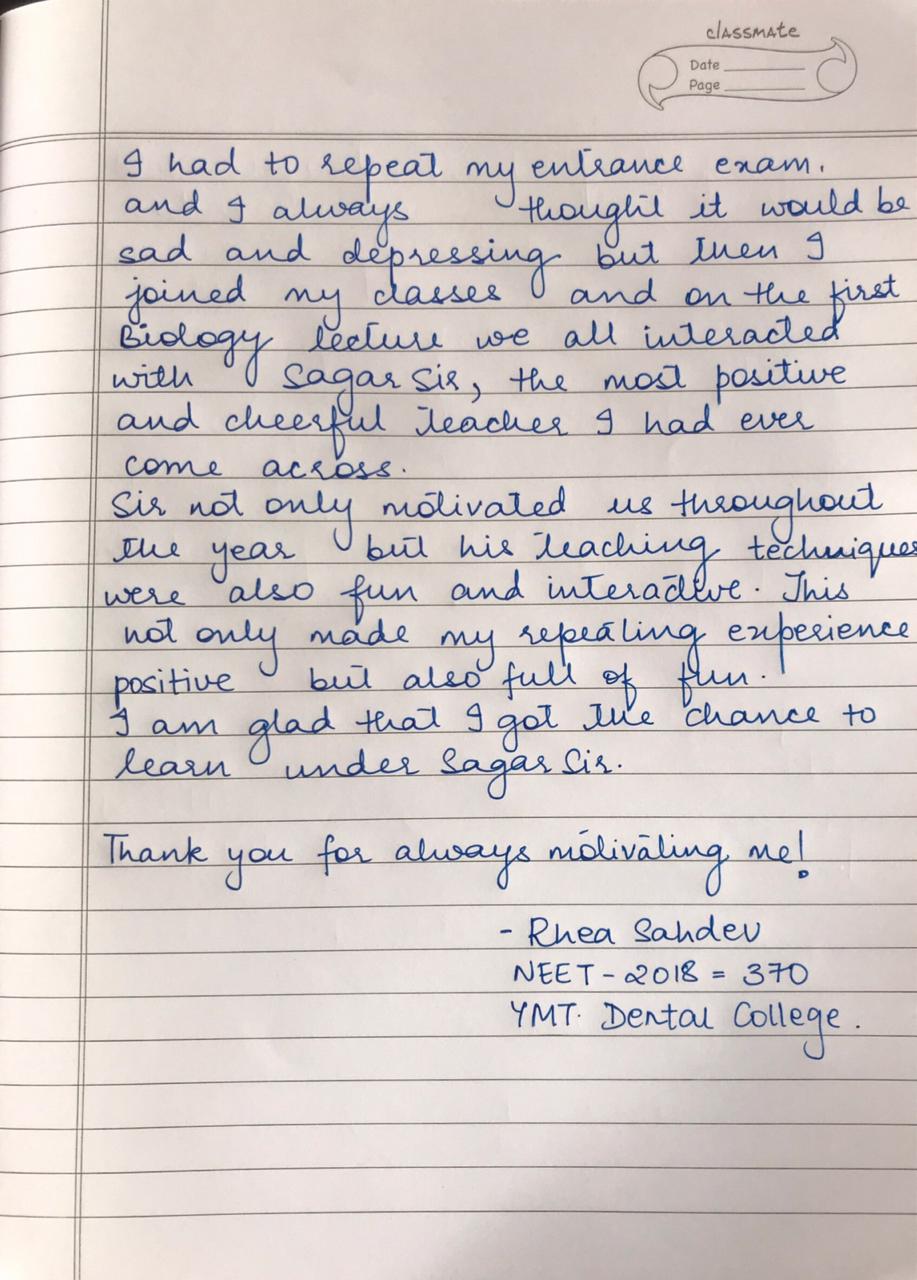 classmate
Date
Page
I had to repeat my entrance exam.
and I always thought it would be
sad and depressing but then I
joined my classes and on the first
Biology lecture we all interacted
with Sagar Sir, the most positive
and cheerful teacher I had ever
come across.
Sir not only motivated us throughout
the year but his teaching techniques
were also fun and interactive. This
not only made my repeating experience
positive but also full of fun.
I am glad that I got the chance to
learn under Sagar Sir.
Thank you for always motivating me!
- Rhea Sahdev
NEET - 2018 = 370
YMT. Dental College.